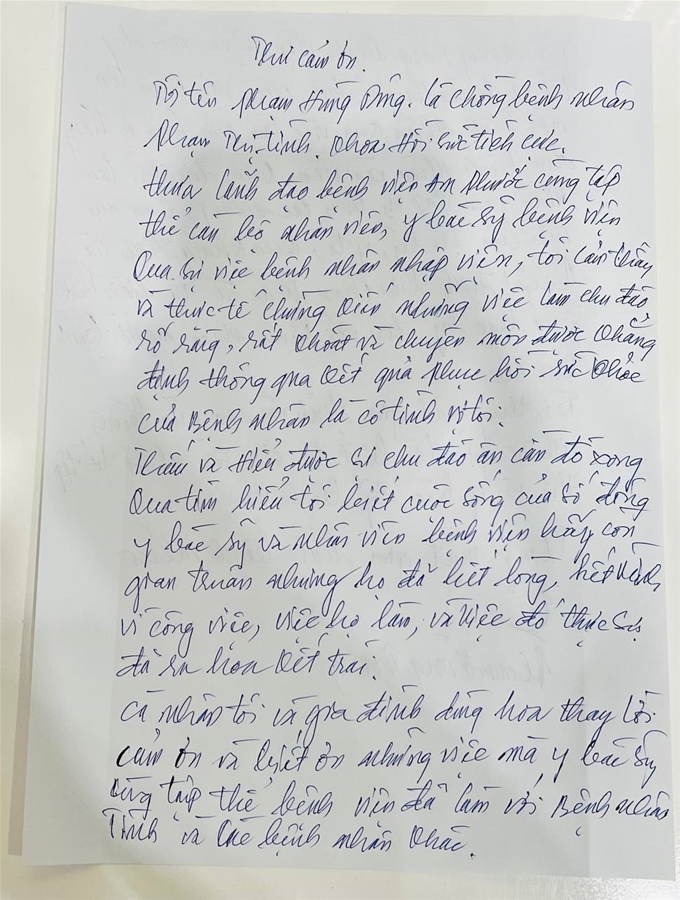 Thư cảm ơn.
Tôi tên Phạm Hùng Dũng. Là chồng bệnh nhân
Phạm Thị Tình. Khoa Hồi sức tích cực.
Thưa lãnh đạo bệnh viện An Phước cùng tập
thể cán bộ nhân viên, y bác sỹ bệnh viện
Qua sự việc bệnh nhân nhập viện, tôi cảm thấy
và thực tế chứng kiến những việc làm chu đáo
rõ ràng, rất khoát và chuyên môn được khẳng
định thông qua kết quả phục hồi sức khỏe
của Bệnh nhân là cô Tình vợ tôi.
Thấm và hiểu được sự chu đáo ân cần đó xong
Qua tìm hiểu tôi biết cuộc sống của số đông
y bác sỹ và nhân viên bệnh viện hãy còn
gian truân nhưng họ đã hết lòng, hết mình
vì công việc, việc họ làm, và việc đó thực sự
đã ra hoa kết trái.
Cá nhân tôi và gia đình dùng hoa thay lời
cảm ơn và biết ơn những việc mà y bác sỹ
cùng tập thể bệnh viện đã làm với Bệnh nhân
Tình và các bệnh nhân khác.